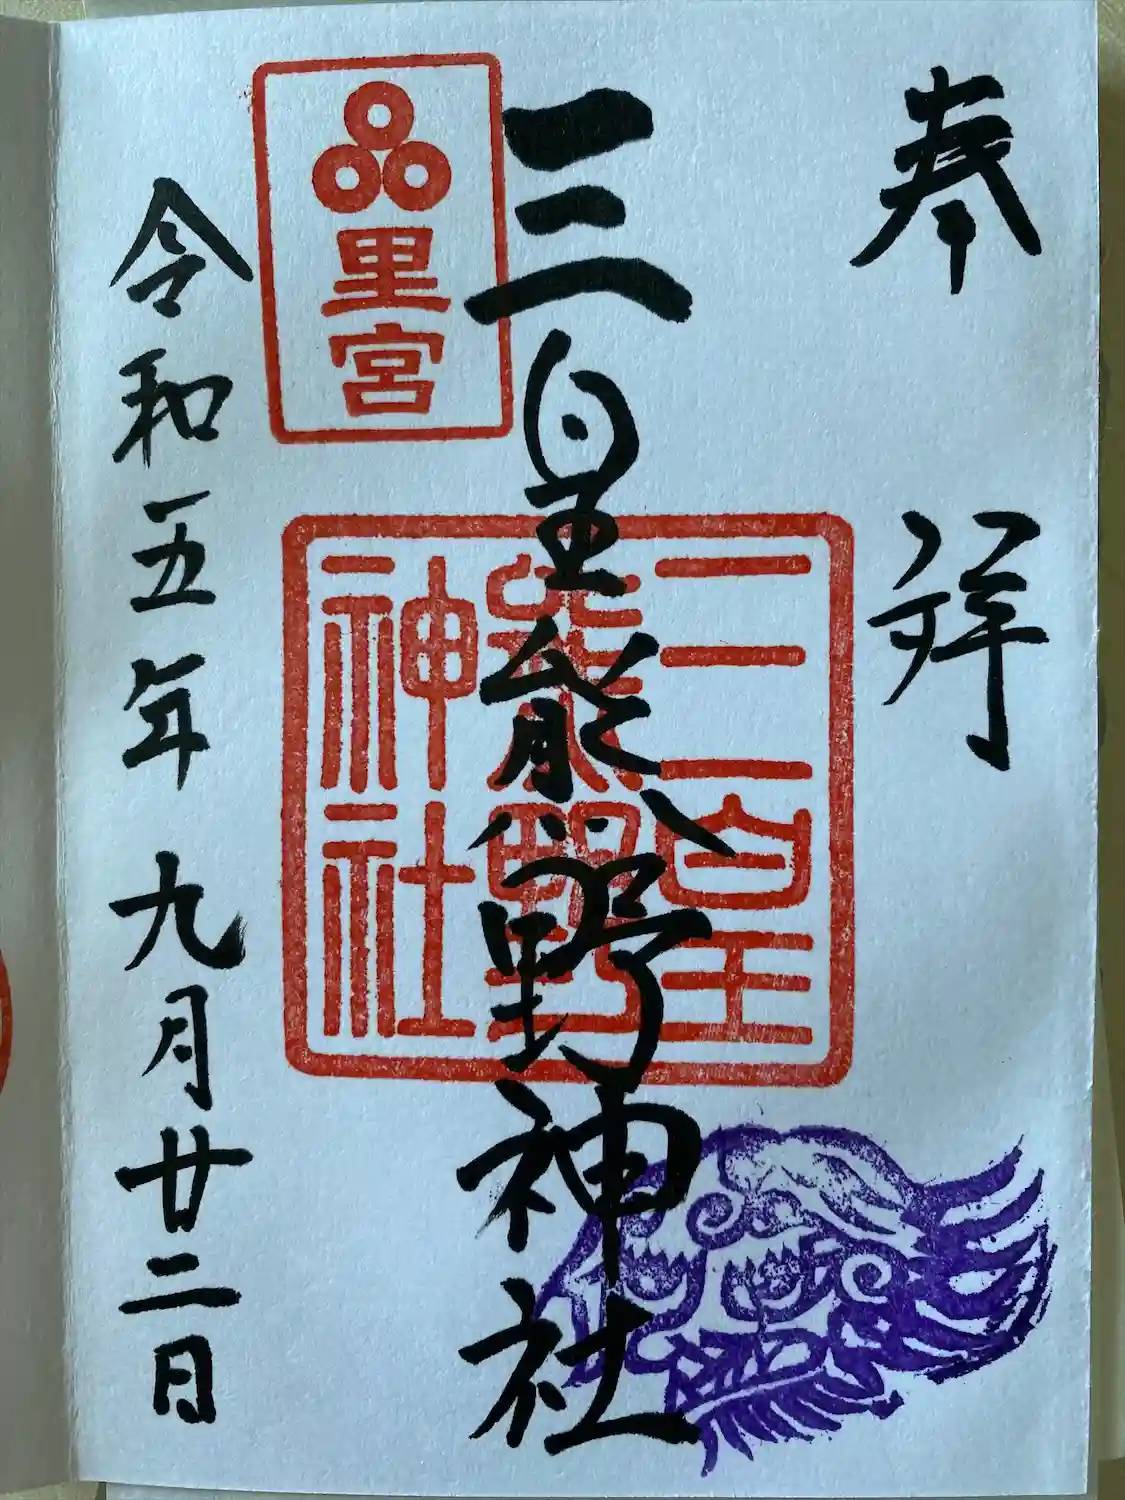 奉拝
三皇熊野神社
里宮
三皇
熊野
神社
令和五年九月廿二日